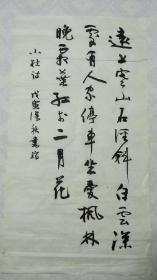 遠上寒山石径斜白雲深
處有人家停車坐愛楓林
晚霜葉红於二月花
小杜诗 戊寅深秋書